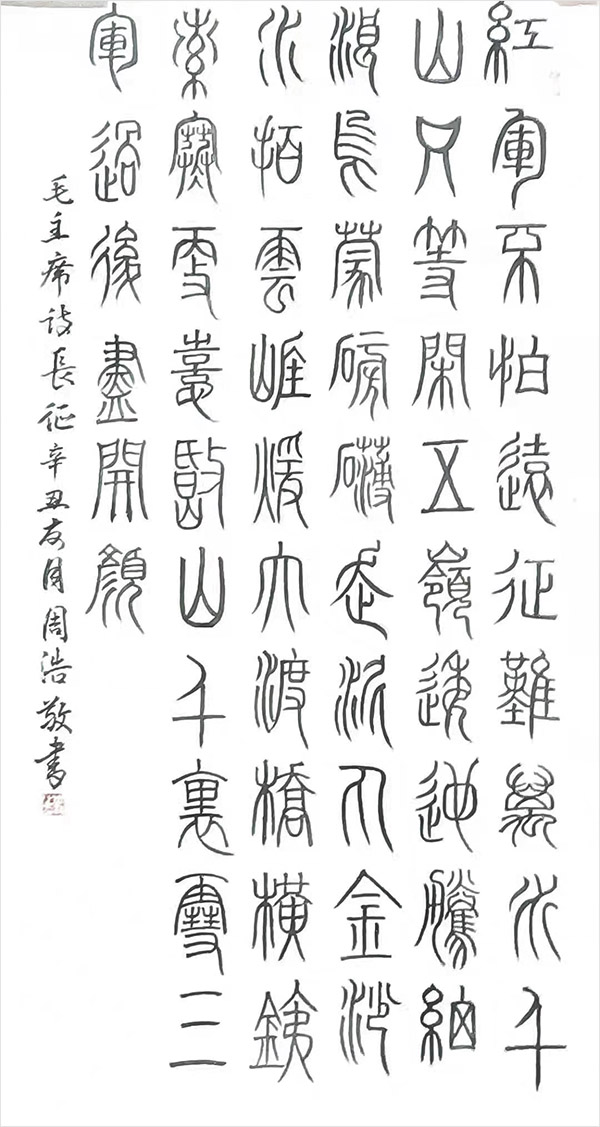 紅軍不怕遠征難萬水千
山只等閑五嶺逶迤騰細
浪烏蒙磅礴走泥丸金沙
水拍雲崖煖大渡橋橫鐵
索寒更喜岷山千裏雪三
軍過後盡開顏
毛主席詩長征辛丑友月周浩敬書